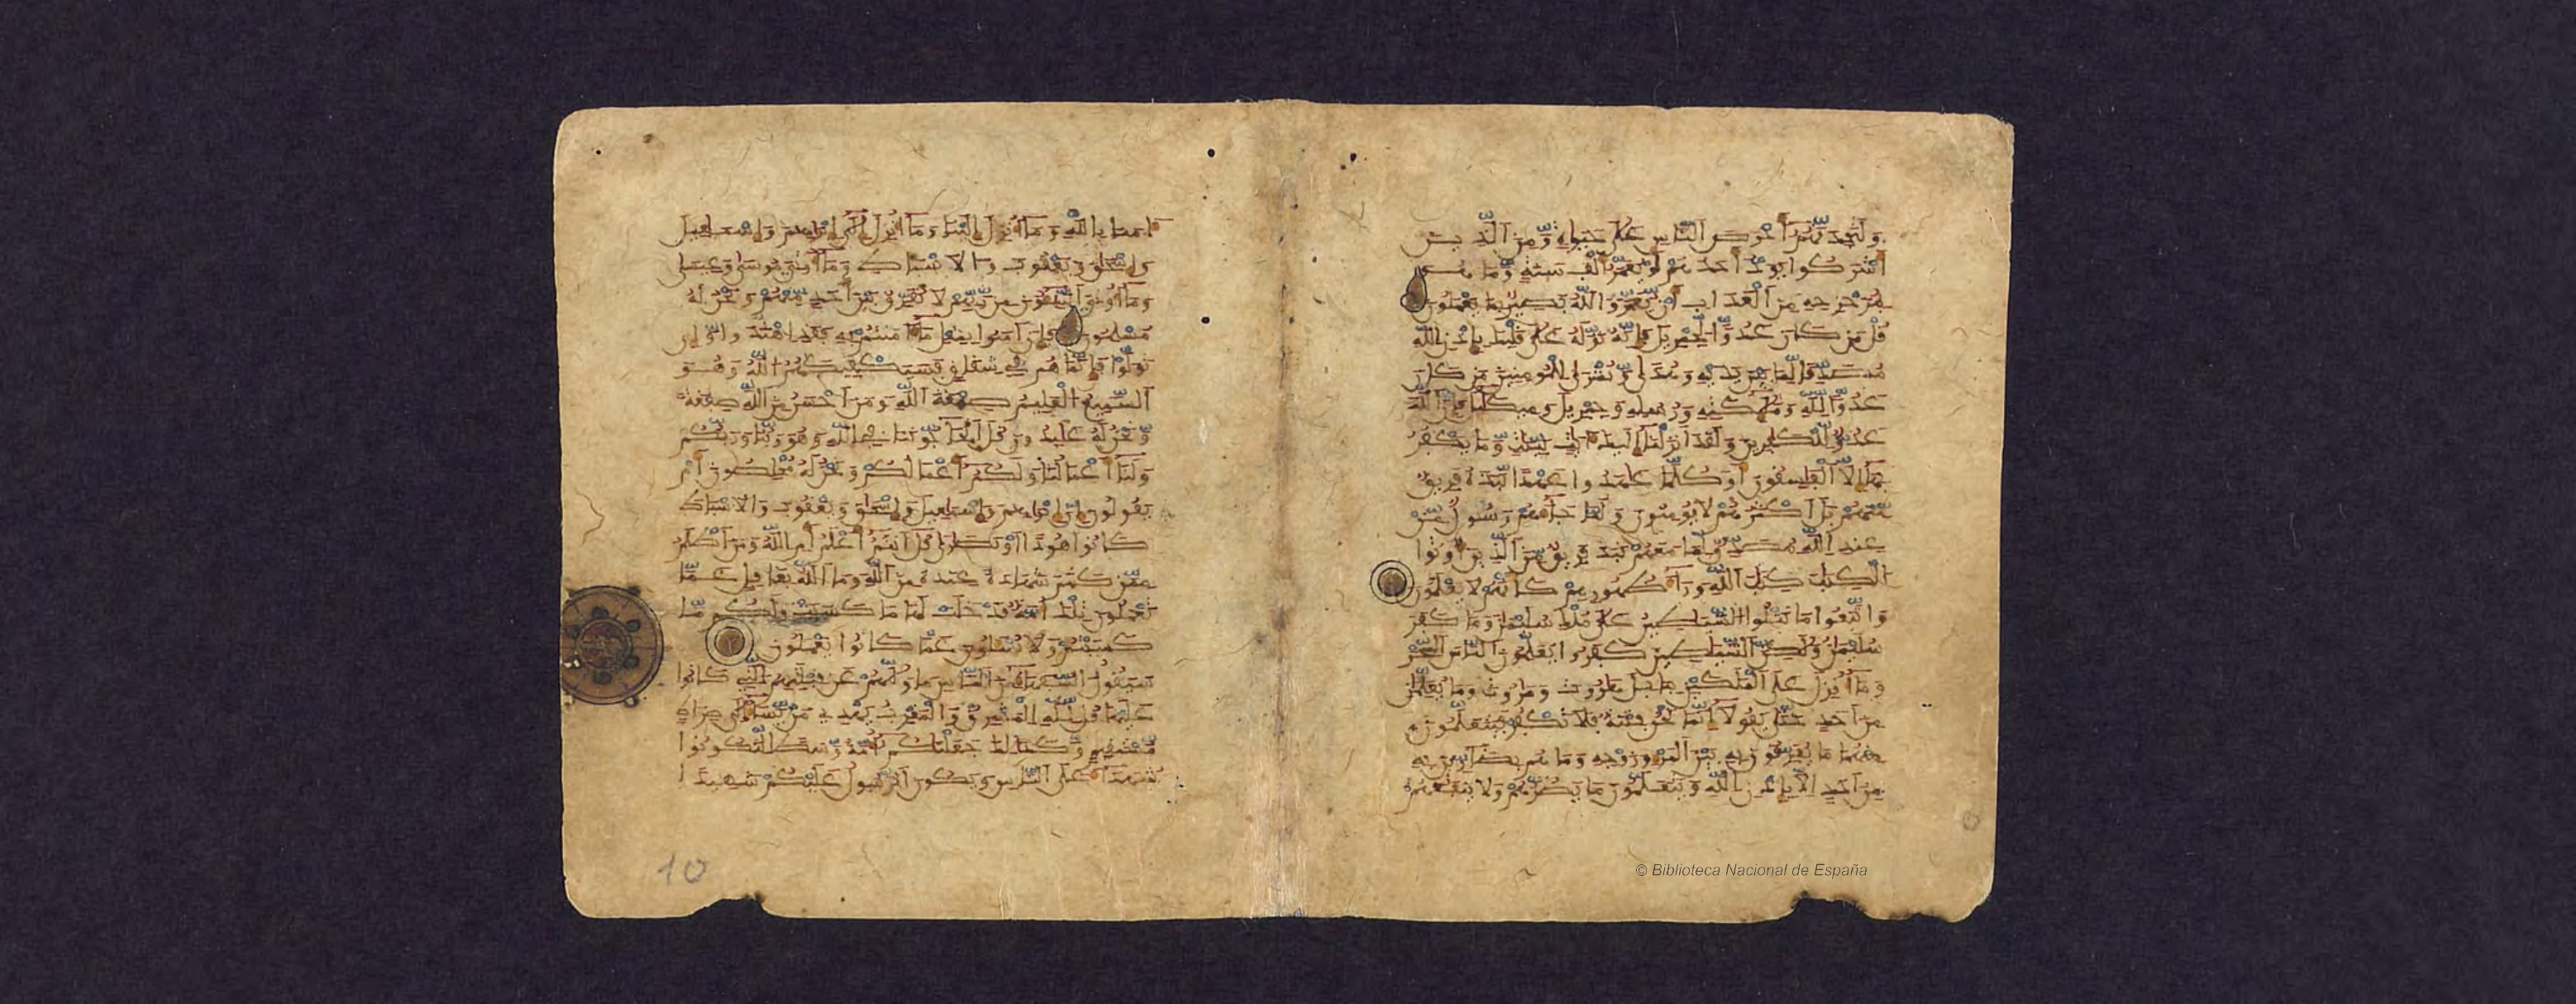 وَلَتَجِدَنَّهُمْ أَحْرَصَ النَّاسِ عَلَىٰ حَيَوٰةٍ وَمِنَ الَّذِينَ
أَشْرَكُوا يَوَدُّ أَحَدُهُمْ لَوْ يُعَمَّرُ أَلْفَ سَنَةٍ وَمَا هُوَ
بِمُزَحْزِحِهِ مِنَ الْعَذَابِ أَنْ يُعَمَّرَ وَاللَّهُ بَصِيرٌ بِمَا يَعْمَلُونَ
قُلْ مَن كَانَ عَدُوًّا لِجِبْرِيلَ فَإِنَّهُ نَزَّلَهُ عَلَىٰ قَلْبِكَ بِإِذْنِ اللَّهِ
مُصَدِّقًا لِمَا بَيْنَ يَدَيْهِ وَهُدًى وَبُشْرَىٰ لِلْمُومِنِينَ مَن كَانَ
عَدُوًّا لِلَّهِ وَمَلَٰئِكَتِهِ وَرُسُلِهِ وَجِبْرِيلَ وَمِيكَٰئِلَ فَإِنَّ اللَّهَ
عَدُوٌّ لِلْكَٰفِرِينَ وَلَقَدْ أَنزَلْنَا إِلَيْكَ ءَايَٰتٍ بَيِّنَٰتٍ وَمَا يَكْفُرُ
بِهَا إِلَّا الْفَٰسِقُونَ أَوَكُلَّمَا عَٰهَدُوا عَهْدًا نَبَذَهُ فَرِيقٌ
مِنْهُم بَلْ أَكْثَرُهُمْ لَا يُومِنُونَ وَلَمَّا جَاءَهُمْ رَسُولٌ مِنْ
عِندِ اللَّهِ مُصَدِّقٌ لِمَا مَعَهُمْ نَبَذَ فَرِيقٌ مِنَ الَّذِينَ أُوتُوا
الْكِتَٰبَ كِتَٰبَ اللَّهِ وَرَاءَ ظُهُورِهِمْ كَأَنَّهُمْ لَا يَعْلَمُونَ
وَاتَّبَعُوا مَا تَتْلُوا الشَّيَٰطِينُ عَلَىٰ مُلْكِ سُلَيْمَٰنَ وَمَا كَفَرَ
سُلَيْمَٰنُ وَلَٰكِنَّ الشَّيَٰطِينَ كَفَرُوا يُعَلِّمُونَ النَّاسَ السِّحْرَ
وَمَا أُنزِلَ عَلَى الْمَلَكَيْنِ بِبَابِلَ هَٰرُوتَ وَمَٰرُوتَ وَمَا يُعَلِّمَٰنِ
مِنْ أَحَدٍ حَتَّىٰ يَقُولَا إِنَّمَا نَحْنُ فِتْنَةٌ فَلَا تَكْفُرْ فَيَتَعَلَّمُونَ
مِنْهُمَا مَا يُفَرِّقُونَ بِهِ بَيْنَ الْمَرْءِ وَزَوْجِهِ وَمَا هُم بِضَارِّينَ بِهِ
مِنْ أَحَدٍ إِلَّا بِإِذْنِ اللَّهِ وَيَتَعَلَّمُونَ مَا يَضُرُّهُمْ وَلَا يَنفَعُهُمْ
ءَامَنَّا بِاللَّهِ وَمَا أُنزِلَ إِلَيْنَا وَمَا أُنزِلَ إِلَىٰ إِبْرَٰهِيمَ وَإِسْمَٰعِيلَ
وَإِسْحَٰقَ وَيَعْقُوبَ وَالْأَسْبَاطِ وَمَا أُوتِيَ مُوسَىٰ وَعِيسَىٰ
وَمَا أُوتِيَ النَّبِيُّونَ مِن رَبِّهِمْ لَا نُفَرِّقُ بَيْنَ أَحَدٍ مِنْهُمْ وَنَحْنُ لَهُ
مُسْلِمُونَ فَإِنْ ءَامَنُوا بِمِثْلِ مَا ءَامَنتُم بِهِ فَقَدِ اهْتَدَوا وَإِن
تَوَلَّوْا فَإِنَّمَا هُمْ فِي شِقَاقٍ فَسَيَكْفِيكَهُمُ اللَّهُ وَهُوَ
السَّمِيعُ الْعَلِيمُ صِبْغَةَ اللَّهِ وَمَنْ أَحْسَنُ مِنَ اللَّهِ صِبْغَةً
وَنَحْنُ لَهُ عَٰبِدُونَ قُلْ أَتُحَاجُّونَنَا فِي اللَّهِ وَهُوَ رَبُّنَا وَرَبُّكُمْ
وَلَنَا أَعْمَالُنَا وَلَكُمْ أَعْمَالُكُمْ وَنَحْنُ لَهُ مُخْلِصُونَ أَمْ
يَقُولُونَ إِنَّ إِبْرَٰهِيمَ وَإِسْمَٰعِيلَ وَإِسْحَٰقَ وَيَعْقُوبَ وَالْأَسْبَاطَ
كَانُوا هُودًا أَوْ نَصَٰرَىٰ قُلْ ءَأَنتُمْ أَعْلَمُ أَمِ اللَّهُ وَمَنْ أَظْلَمُ
مِمَّن كَتَمَ شَهَٰدَةً عِندَهُ مِنَ اللَّهِ وَمَا اللَّهُ بِغَٰفِلٍ عَمَّا
تَعْمَلُونَ تِلْكَ أُمَّةٌ قَدْ خَلَتْ لَهَا مَا كَسَبَتْ وَلَكُم مَّا
كَسَبْتُمْ وَلَا تُسْـَٔلُونَ عَمَّا كَانُوا يَعْمَلُونَ
سَيَقُولُ السُّفَهَاءُ مِنَ النَّاسِ مَا وَلَّىٰهُمْ عَن قِبْلَتِهِمُ الَّتِي كَانُوا
عَلَيْهَا قُل لِلَّهِ الْمَشْرِقُ وَالْمَغْرِبُ يَهْدِي مَن يَشَاءُ إِلَىٰ صِرَٰطٍ
مُسْتَقِيمٍ وَكَذَٰلِكَ جَعَلْنَٰكُمْ أُمَّةً وَسَطًا لِتَكُونُوا
شُهَدَاءَ عَلَى النَّاسِ وَيَكُونَ الرَّسُولُ عَلَيْكُمْ شَهِيدًا
10
© Biblioteca Nacional de España